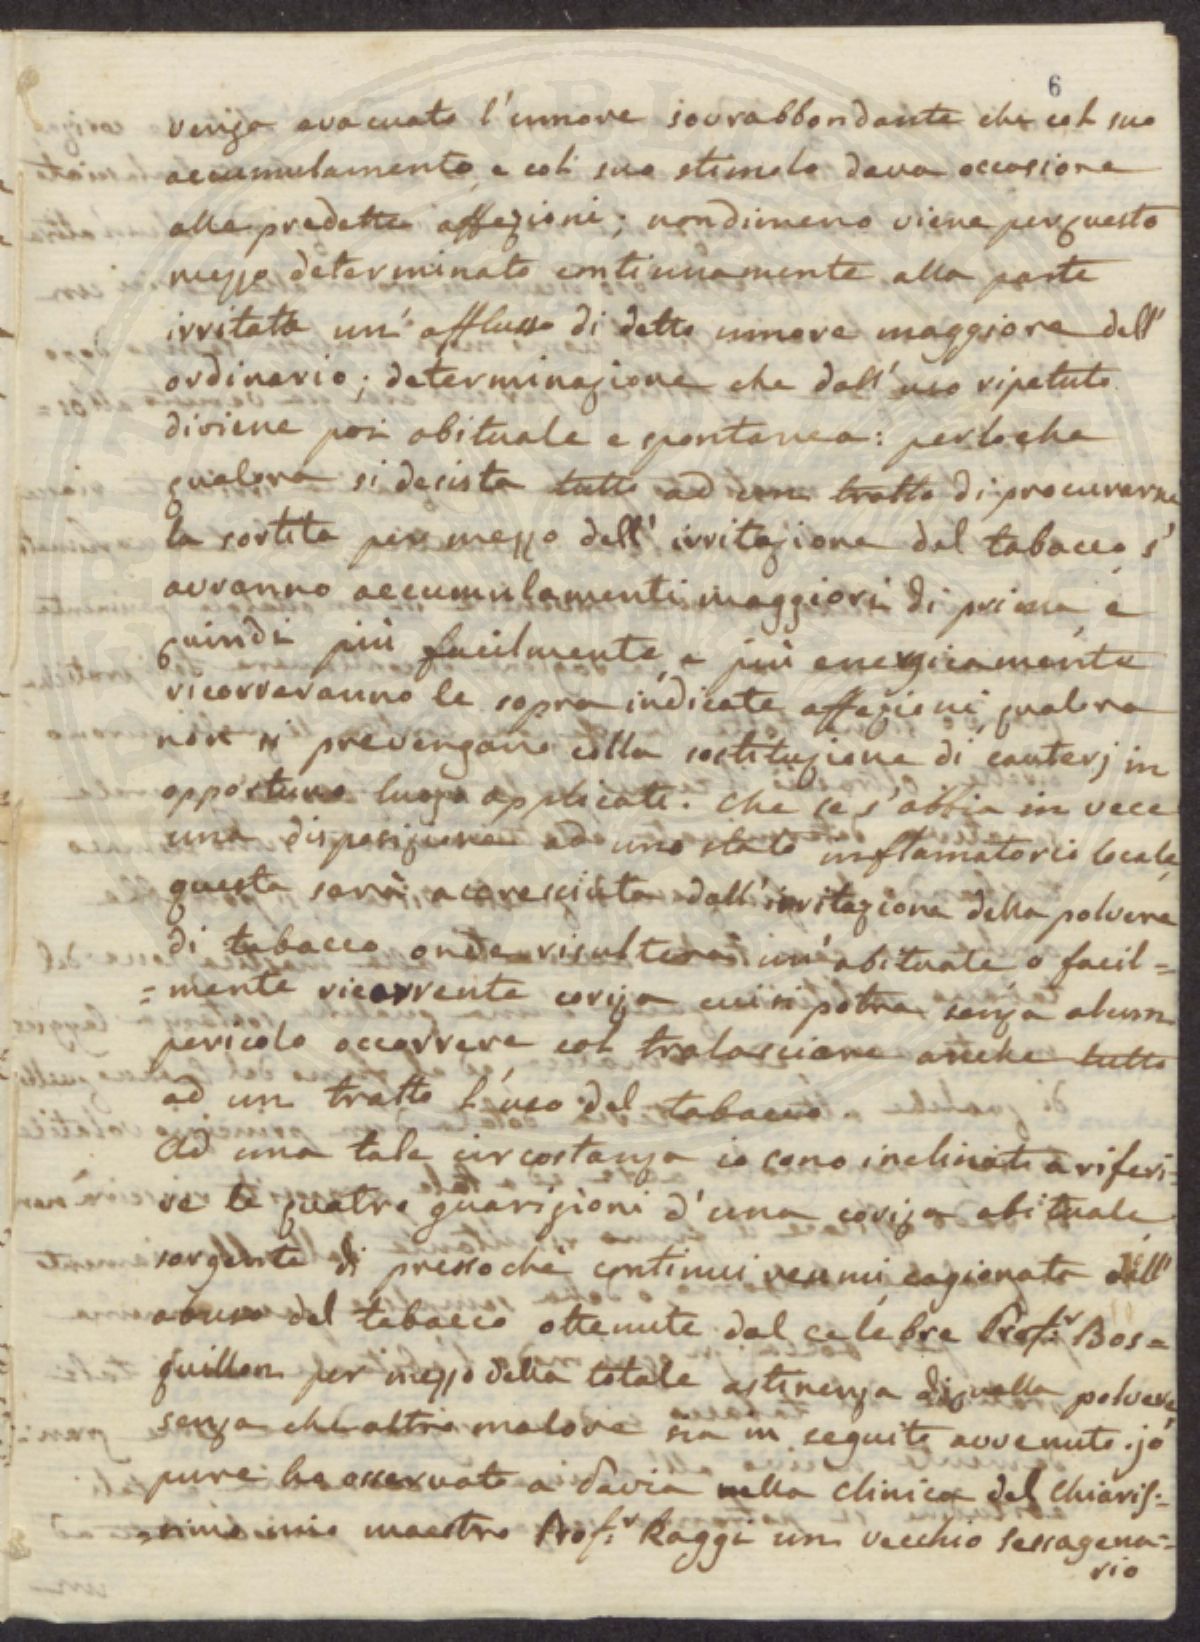 6
venga evacuato l'umore sovrabbondante che col suo
accumulamento, e col suo stimolo dava occasione
alle predette affezioni; nondimeno viene per questo
mezzo determinato continuamente alla parte
irritata un' afflusso di detto umore maggiore dell'
ordinario; determinazione che dall'uso ripetuto
diviene poi abituale e spontanea: perloche
qualora si desista tutto ad un tratto di procurarne
la sortita per mezzo dell' irritazione del tabacco, s'
avranno accumulamenti maggiori di prima, e
quindi più facilmente, e più energicamente
ricorreranno le sopra indicate affezioni, qualora
non si prevengano colla sostituzione di cauterj in
opportuno luogo applicati. Che se s'abbia in vece
una disposizione ad uno stato inflamatorio locale,
questa sarà accresciuta dall'irritazione della polvere
di tabacco onde risulterà un'abituale o facil=
=mente ricorrente coriza cui si potrà senza alcun
pericolo occorrere col tralasciare anche tutto
ad un tratto l'uso del tabacco.
Ad una tale circostanza io sono inclinato a riferi=
re le quatro guarigioni d'una coriza abituale
sorgente di pressochè continui reumi cagionata dall'
abuso del tabacco ottenute dal celebre Prof.r Bos=
quillon per mezzo della totale astinenza di quella polvere
senza che altro malore sia in seguito avvenuto. jo
pure ho osservato a Pavia nella clinica del Chiaris=
=simo mio maestro Prof.r Raggi un vecchio sessagena=
rio